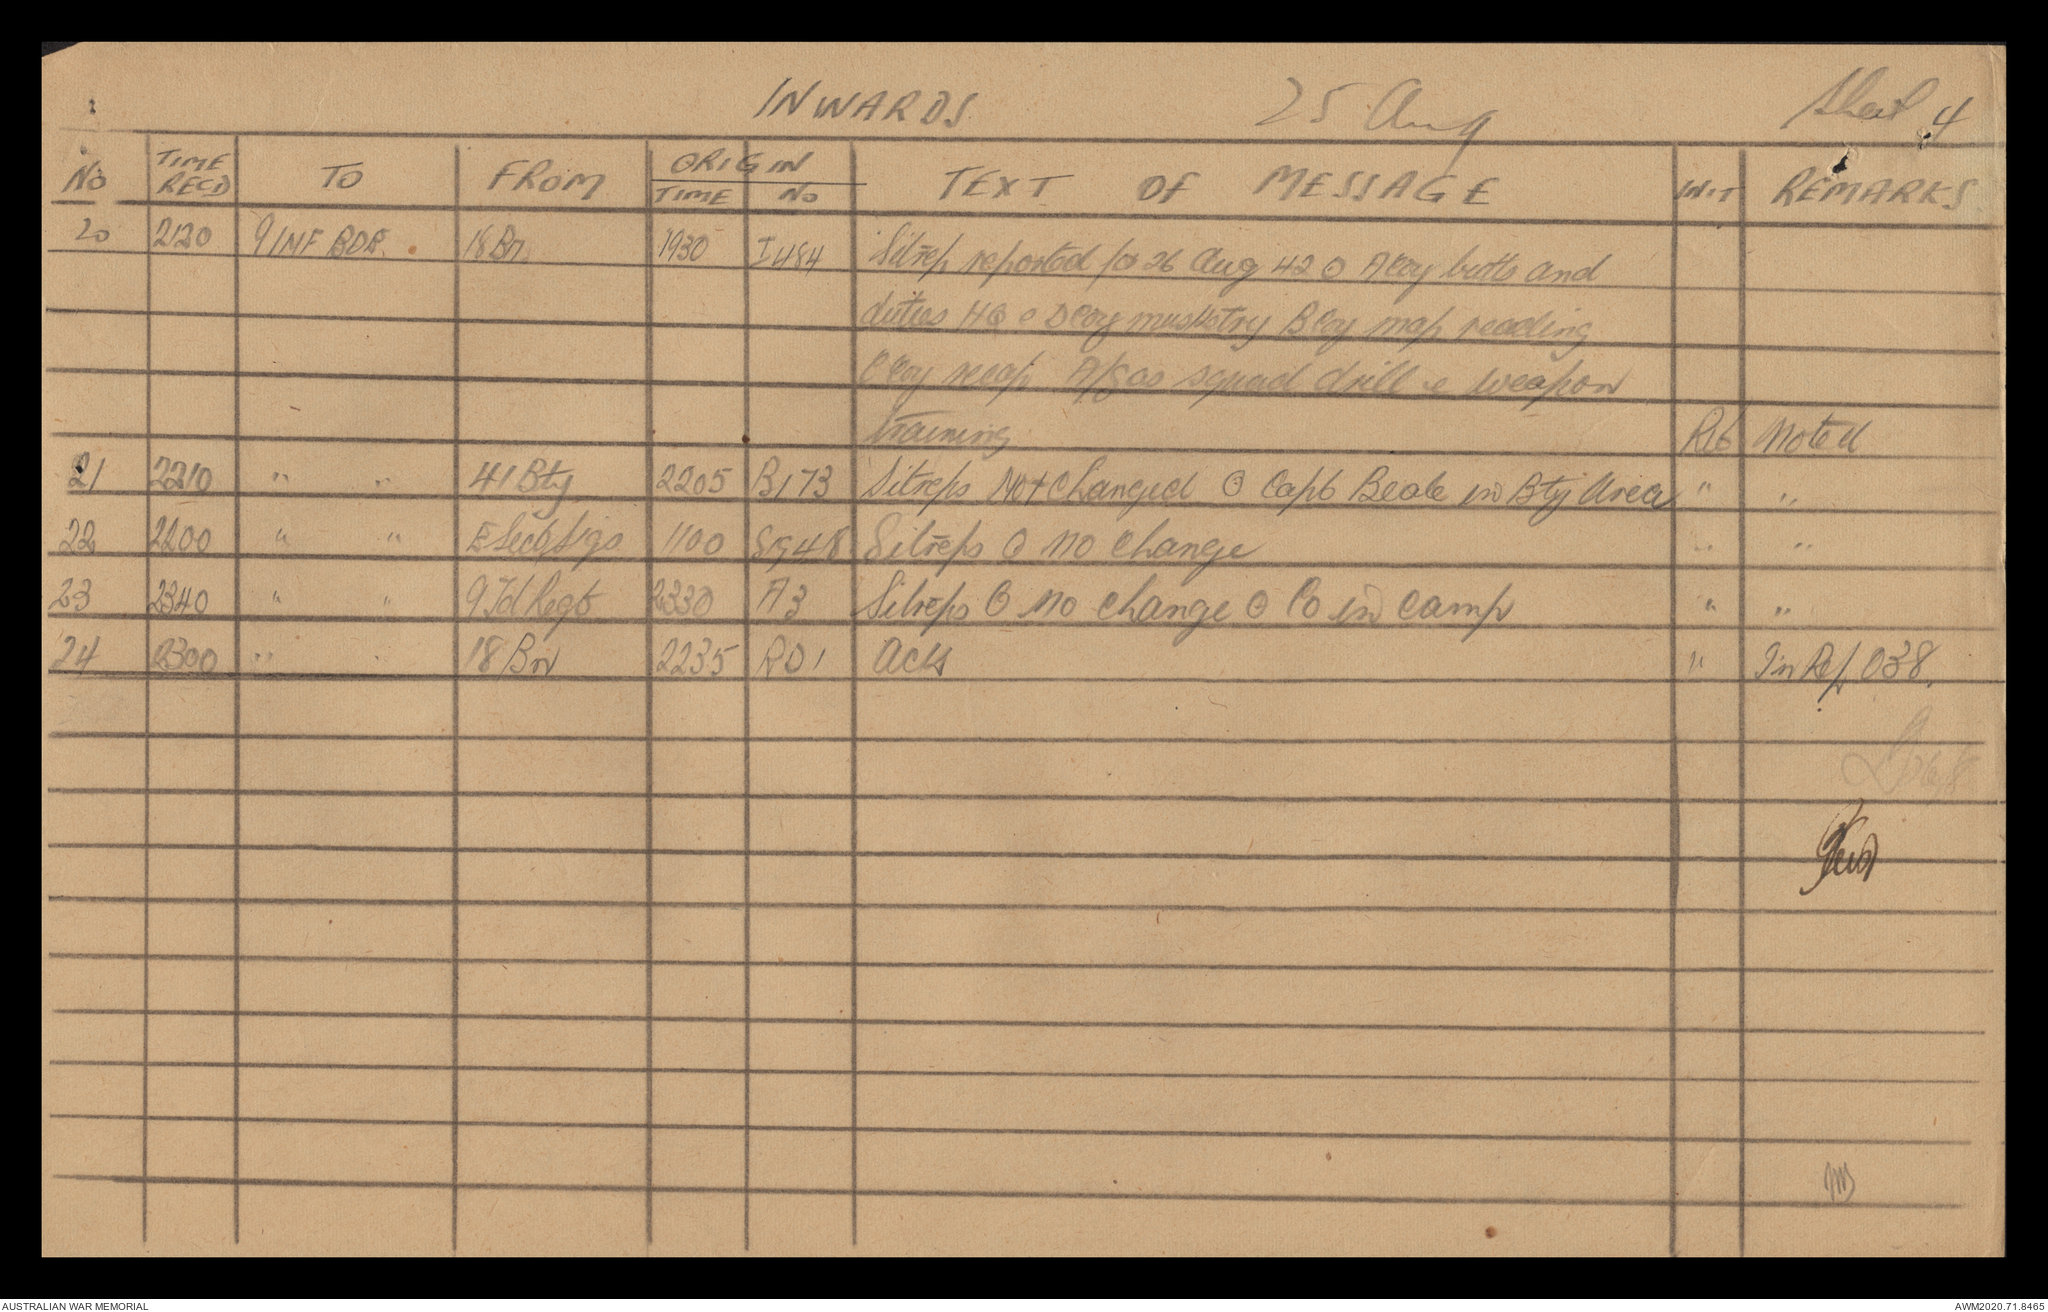 INWARDS 25 Aug Sheet 4
No TIME RECD TO FROM ORIGIN TIME No TEXT OF MESSAGE INIT REMARKS
20 2120 9 INF BDE. 18 Bn 1930 I484 Sitrep reported for 26 Aug 42 ⊙ A Coy butts and
duties HQ ⊙ D Coy musketry B Coy map reading
C Coy recap squad drill & weapon
training Noted
21 2210 " " 41 Bty 2205 B173 Sitreps Not Changed ⊙ Capt Beale in Bty Area " "
22 2200 " " E Sect Sigs 1100 SG48 Sitreps ⊙ No Change " "
23 2340 " " 9 Fd Regt 2330 A3 Sitreps ⊙ No change ⊙ Co in camp " "
24 2300 " " 18 Bn 2235 RO1 Ack " In Ref 038.
AUSTRALIAN WAR MEMORIAL AWM2020.71.8465